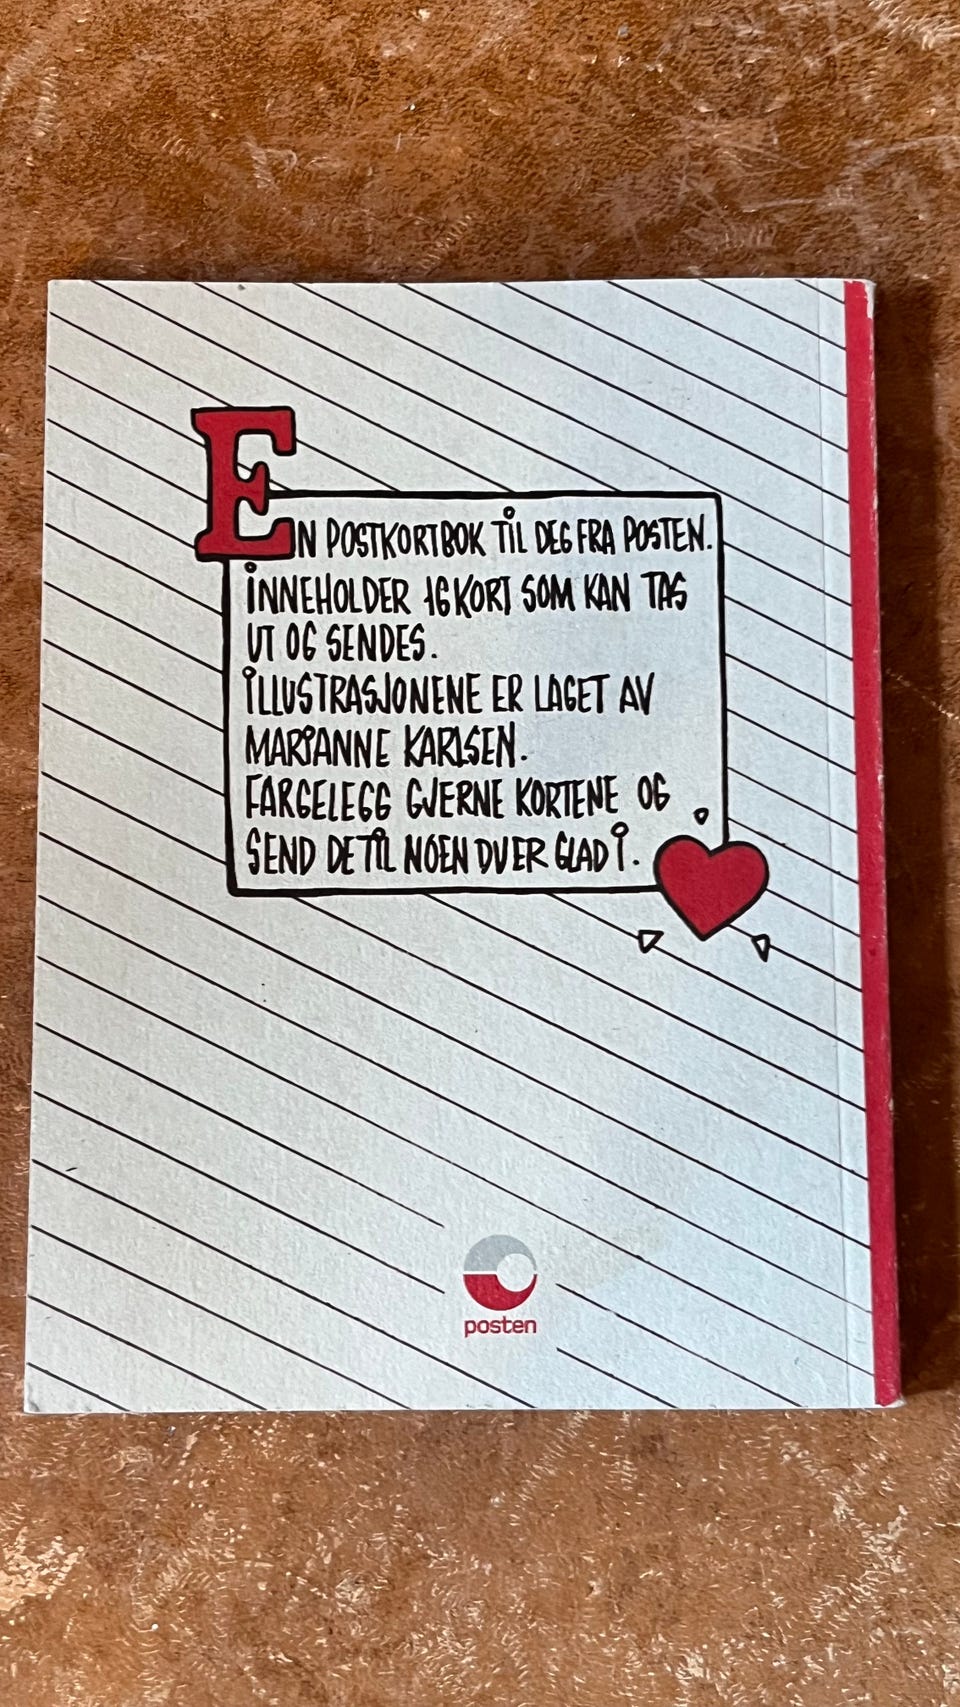 EN POSTKORTBOK TIL DEG FRA POSTEN.
INNEHOLDER 16 KORT SOM KAN TAS
UT OG SENDES.
ILLUSTRASJONENE ER LAGET AV
MARIANNE KARLSEN.
FARGELEGG GJERNE KORTENE OG
SEND DE TIL NOEN DU ER GLAD I.
posten